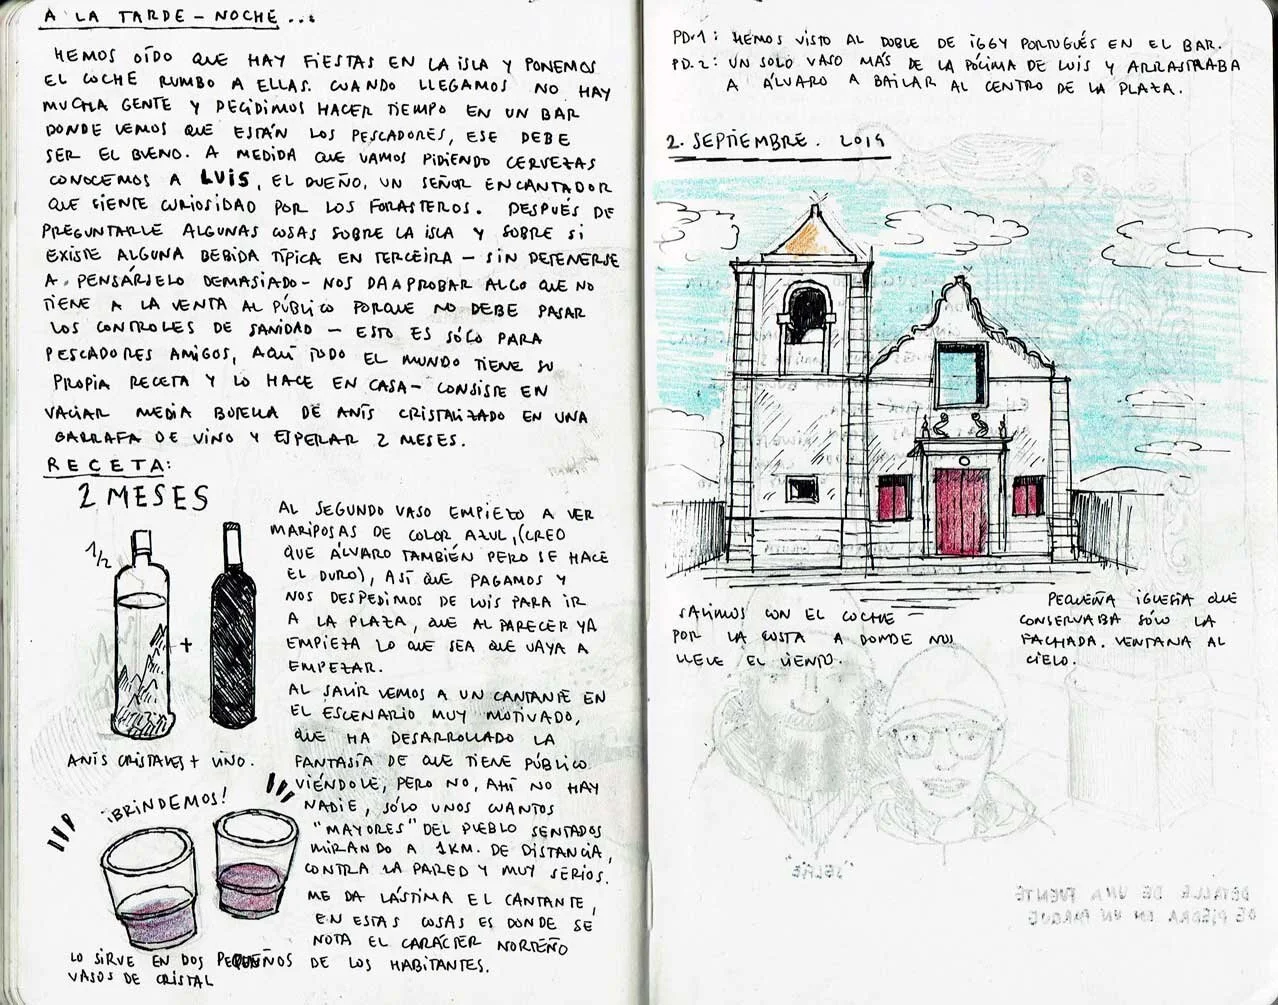 A LA TARDE - NOCHE...
HEMOS OÍDO QUE HAY FIESTAS EN LA ISLA Y PONEMOS
EL COCHE RUMBO A ELLAS. CUANDO LLEGAMOS NO HAY
MUCHA GENTE Y DECIDIMOS HACER TIEMPO EN UN BAR
DONDE VEMOS QUE ESTÁN LOS PESCADORES, ESE DEBE
SER EL BUENO. A MEDIDA QUE VAMOS PIDIENDO CERVEZAS
CONOCEMOS A LUIS, EL DUEÑO, UN SEÑOR ENCANTADOR
QUE SIENTE CURIOSIDAD POR LOS FORASTEROS. DESPUÉS DE
PREGUNTARLE ALGUNAS COSAS SOBRE LA ISLA Y SOBRE SI
EXISTE ALGUNA BEBIDA TÍPICA EN TERCEIRA - SIN DETENERSE
A PENSÁRSELO DEMASIADO - NOS DA A PROBAR ALGO QUE NO
TIENE A LA VENTA AL PÚBLICO PORQUE NO DEBE PASAR
LOS CONTROLES DE SANIDAD - ESTO ES SÓLO PARA
PESCADORES AMIGOS, AQUÍ TODO EL MUNDO TIENE SU
PROPIA RECETA Y LO HACE EN CASA - CONSISTE EN
VACIAR MEDIA BOTELLA DE ANÍS CRISTALIZADO EN UNA
GARRAFA DE VINO Y ESPERAR 2 MESES.
RECETA:
2 MESES
1/2
+
ANÍS CRISTALES + VINO.
¡BRINDEMOS!
LO SIRVE EN DOS PEQUEÑOS
VASOS DE CRISTAL
AL SEGUNDO VASO EMPIEZO A VER
MARIPOSAS DE COLOR AZUL, (CREO
QUE ÁLVARO TAMBIÉN PERO SE HACE
EL DURO), ASÍ QUE PAGAMOS Y
NOS DESPEDIMOS DE LUIS PARA IR
A LA PLAZA, QUE AL PARECER YA
EMPIEZA LO QUE SEA QUE VAYA A
EMPEZAR.
AL SALIR VEMOS A UN CANTANTE EN
EL ESCENARIO MUY MOTIVADO,
QUE HA DESARROLLADO LA
FANTASÍA DE QUE TIENE PÚBLICO
VIÉNDOLE, PERO NO, AHÍ NO HAY
NADIE, SÓLO UNOS CUANTOS
"MAYORES" DEL PUEBLO SENTADOS
MIRANDO A 1KM. DE DISTANCIA,
CONTRA LA PARED Y MUY SERIOS.
ME DA LÁSTIMA EL CANTANTE,
EN ESTAS COSAS ES DONDE SE
NOTA EL CARÁCTER NORTEÑO
DE LOS HABITANTES.
PD.1: HEMOS VISTO AL DOBLE DE IGGY PORTUGUÉS EN EL BAR.
PD.2: UN SOLO VASO MÁS DE LA PÓCIMA DE LUIS Y ARRASTRABA
A ÁLVARO A BAILAR AL CENTRO DE LA PLAZA.
2. SEPTIEMBRE. 2015
SALIMOS CON EL COCHE
POR LA COSTA A DONDE NOS
LLEVE EL VIENTO.
PEQUEÑA IGLESIA QUE
CONSERVABA SÓLO LA
FACHADA. VENTANA AL
CIELO.
"SELFIE"
DETALLE DE UNA FUENTE
DE PIEDRA EN UN PARQUE